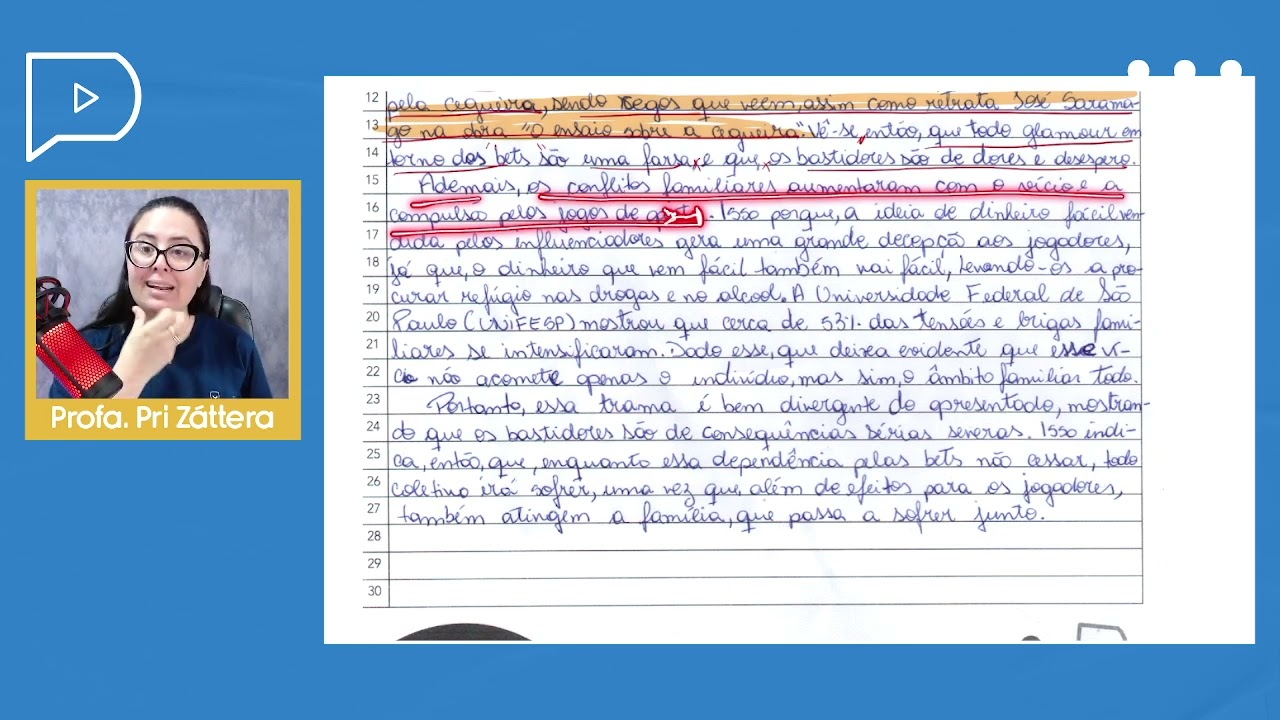 12 pela cegueira, sendo cegos que veem, assim como retrata José Sarama-
13 go na obra "O ensaio sobre a cegueira". Vê-se, então, que todo glamour em
14 torno das bets são uma farsa, e que, os bastidores são de dores e desespero.
15 Ademais, os conflitos familiares aumentaram com o vício e a
16 compulsão pelos jogos de . Isso porque, a ideia de dinheiro fácil ven-
17 dida pelos influenciadores, gera uma grande decepção aos jogadores,
18 já que, o dinheiro que vem fácil também vai fácil, levando-os a pro-
19 curar refúgio nas drogas e no alcool. A Universidade Federal de São
20 Paulo (UNIFESP) mostrou que cerca de 53% das tensões e brigas fami-
21 liares se intensificaram. Dado esse, que deixa evidente que esse ví-
22 cio não acomete apenas o indivíduo, mas sim, o âmbito familiar todo.
23 Portanto, essa trama é bem divergente do apresentado, mostran-
24 do que os bastidores são de consequências sérias severas. Isso indi-
25 ca, então, que, enquanto essa dependência pelas bets não cessar, todo
26 coletivo irá sofrer, uma vez que, além de efeitos para os jogadores,
27 também atingem a família, que passa a sofrer junto.
28
29
30
Profa. Pri Záttera